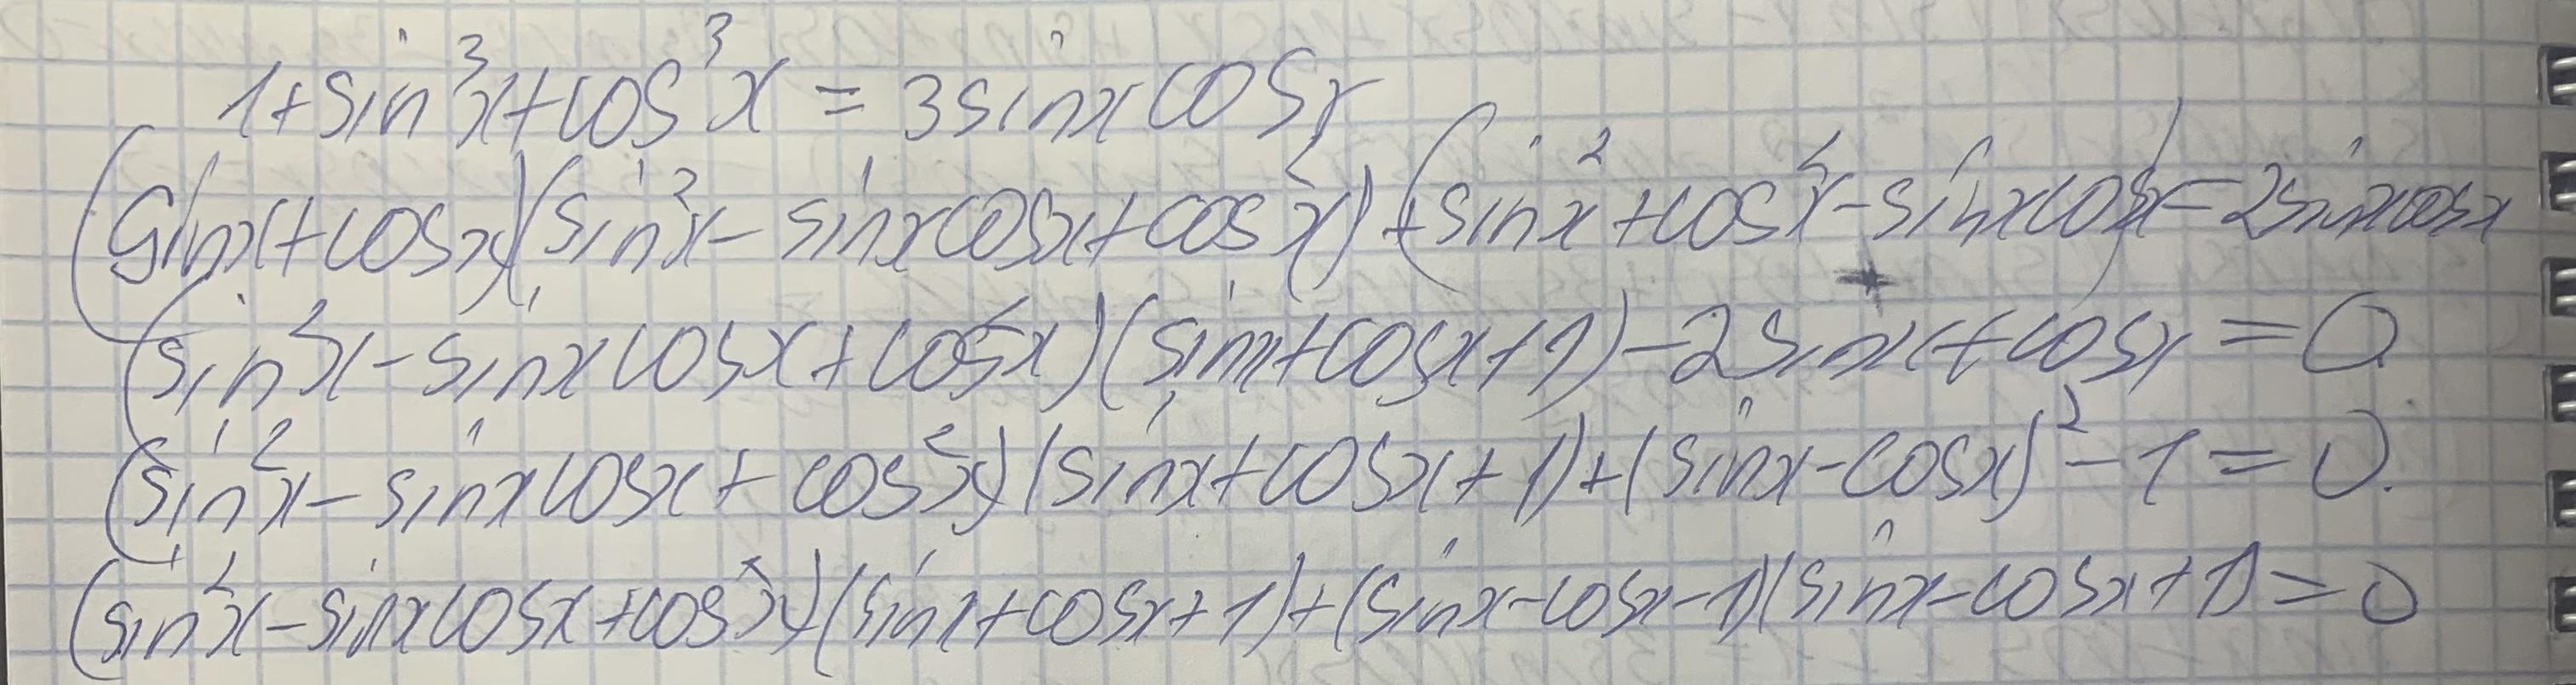 1+sin³x+cos³x = 3sinxcosx
(sinx+cosx)(sin²x-sinxcosx+cos²x)+(sin²x+cos²x-sinxcosx)-2sinxcosx
(sin²x-sinxcosx+cos²x)(sinx+cosx+1)-2sinx+cosx=0
(sin²x-sinxcosx+cos²x)(sinx+cosx+1)+(sinx-cosx)²-1=0.
(sin²x-sinxcosx+cos²x)(sinx+cosx+1)+(sinx-cosx-1)(sinx-cosx+1)=0